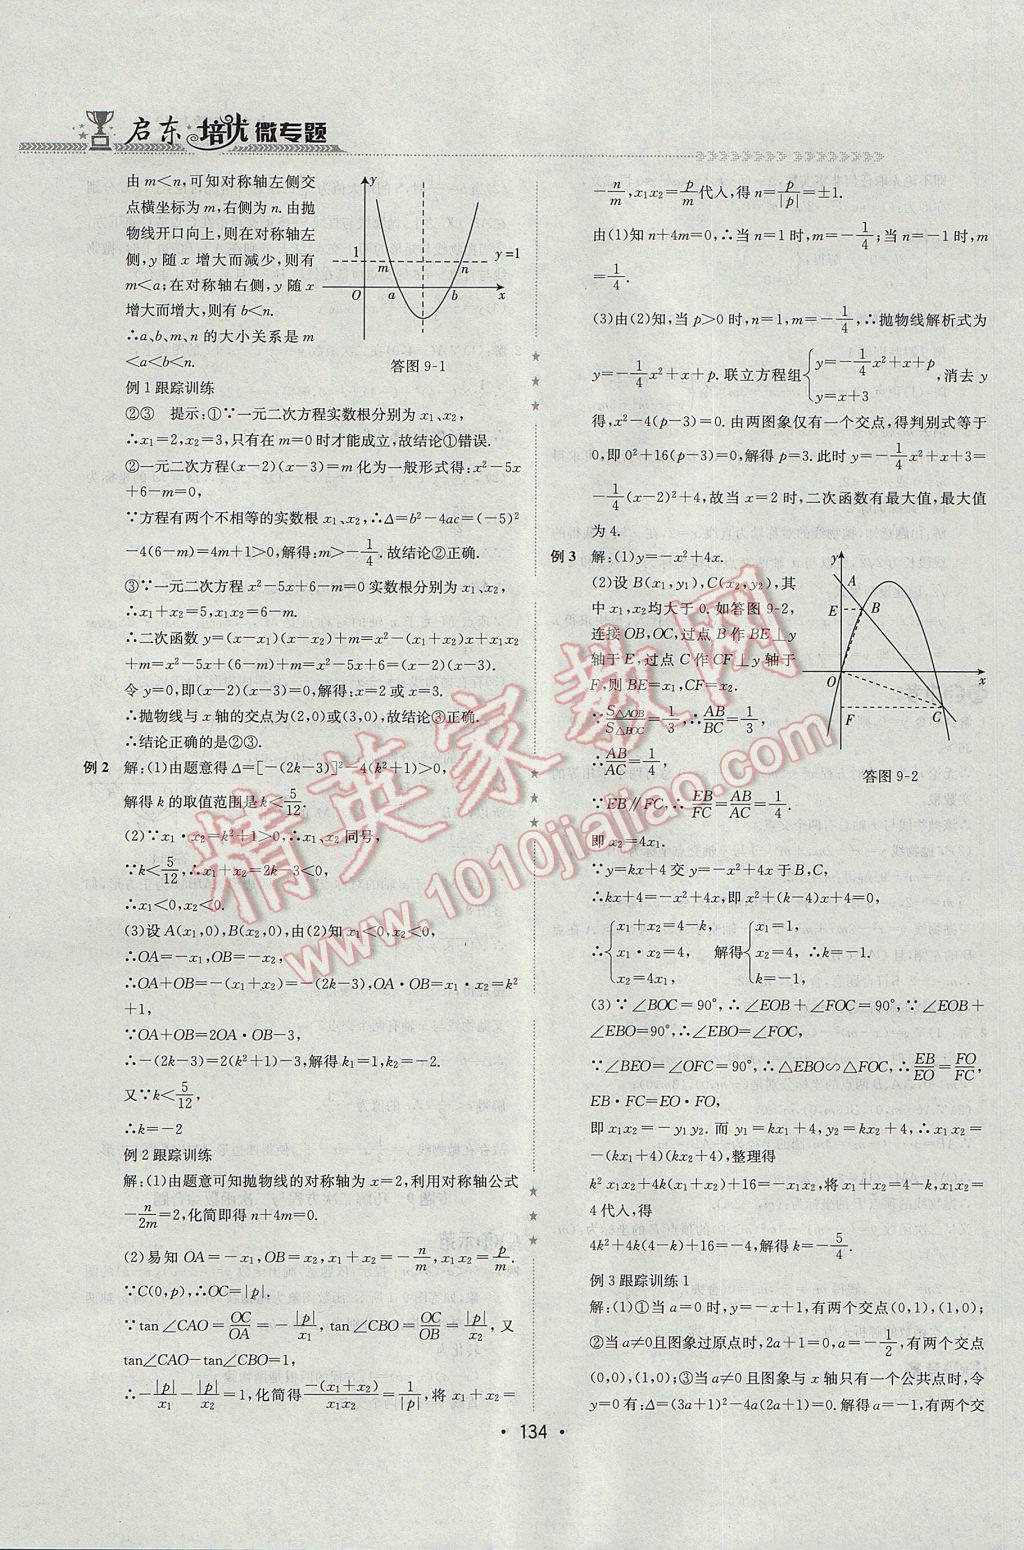 启东 培优 微专题
由m<n,可知对称轴左侧交
点横坐标为m,右侧为n.由抛
物线开口向上,则在对称轴左
侧,y随x增大而减少,则有
m<a;在对称轴右侧,y随x
增大而增大,则有b<n.
∴a、b、m、n的大小关系是m
<a<b<n.
y
1
m
n
y=1
O
a
b
x
答图9-1
例1跟踪训练
②③ 提示:①∵一元二次方程实数根分别为x₁、x₂,
∴x₁=2,x₂=3,只有在m=0时才能成立,故结论①错误.
②一元二次方程(x-2)(x-3)=m化为一般形式得:x²-5x
+6-m=0,
∵方程有两个不相等的实数根x₁、x₂,∴Δ=b²-4ac=(-5)²
-4(6-m)=4m+1>0,解得:m>-1/4.故结论②正确.
③∵一元二次方程x²-5x+6-m=0实数根分别为x₁、x₂,
∴x₁+x₂=5,x₁x₂=6-m.
∴二次函数y=(x-x₁)(x-x₂)+m=x²-(x₁+x₂)x+x₁x₂
+m=x²-5x+(6-m)+m=x²-5x+6=(x-2)(x-3).
令y=0,即(x-2)(x-3)=0,解得:x=2或x=3.
∴抛物线与x轴的交点为(2,0)或(3,0),故结论③正确.
∴结论正确的是②③.
例2 解:(1)由题意得Δ=[-(2k-3)]²-4(k²+1)>0,
解得k的取值范围是k<5/12.
(2)∵x₁·x₂=k²+1>0,∴x₁、x₂同号,
∵k<5/12,∴x₁+x₂=2k-3<0,
∴x₁<0,x₂<0.
(3)设A(x₁,0),B(x₂,0),由(2)知x₁<0,x₂<0,
∴OA=-x₁,OB=-x₂,
∴OA+OB=-(x₁+x₂)=-(2k-3),OA·OB=x₁·x₂=k²
+1,
∵OA+OB=2OA·OB-3,
∴-(2k-3)=2(k²+1)-3,解得k₁=1,k₂=-2.
又∵k<5/12,
∴k=-2
例2跟踪训练
解:(1)由题意可知抛物线的对称轴为x=2,利用对称轴公式
-n/2m=2,化简即得n+4m=0.
(2)易知OA=-x₁,OB=x₂,x₁+x₂=-n/m,x₁x₂=p/m.
∵C(0,p),∴OC=|p|.
∵tan∠CAO=OC/OA=-|p|/x₁,tan∠CBO=OC/OB=|p|/x₂,又
tan∠CAO-tan∠CBO=1,
∴-|p|/x₁-|p|/x₂=1,化简得-(x₁+x₂)/x₁x₂=1/|p|,将x₁+x₂=
-n/m,x₁x₂=p/m代入,得n=p/|p|=±1.
由(1)知n+4m=0,∴当n=1时,m=-1/4;当n=-1时,m
=1/4.
(3)由(2)知,当p>0时,n=1,m=-1/4,∴抛物线解析式为
y=-1/4x²+x+p.联立方程组{y=-1/4x²+x+p y=x+3,消去y
得,x²-4(p-3)=0.由两图象仅有一个交点,得判别式等于
0,即0²+16(p-3)=0,解得p=3.此时y=-1/4x²+x+3=
-1/4(x-2)²+4,故当x=2时,二次函数有最大值,最大值
为4.
例3 解:(1)y=-x²+4x.
(2)设B(x₁,y₁),C(x₂,y₂),其
中x₁、x₂均大于0.如答图9-2,
连接OB,OC,过点B作BE⊥y
轴于E,过点C作CF⊥y轴于
F,则BE=x₁,CF=x₂.
∵S△AOB/S△BOC=1/3,∴AB/BC=1/3,
∴AB/AC=1/4,
∵EB∥FC,∴EB/FC=AB/AC=1/4.
y
A
E
B
O
x
F
C
答图9-2
即x₂=4x₁.
∵y=kx+4交y=-x²+4x于B、C,
∴kx+4=-x²+4x,即x²+(k-4)x+4=0,
∴{x₁+x₂=4-k, x₁·x₂=4, x₂=4x₁, 解得{x₁=1, x₂=4, k=-1, ∴k=-1.
(3)∵∠BOC=90°,∴∠EOB+∠FOC=90°,∵∠EOB+
∠EBO=90°,∴∠EBO=∠FOC,
∵∠BEO=∠OFC=90°,∴△EBO∽△FOC,∴EB/EO=FO/FC,
EB·FC=EO·FO,
即x₁x₂=-y₁y₂.而y₁=kx₁+4,y₂=kx₂+4,∴x₁x₂=
-(kx₁+4)(kx₂+4),整理得
k²x₁x₂+4k(x₁+x₂)+16=-x₁x₂,将x₁+x₂=4-k,x₁x₂=
4代入,得
4k²+4k(4-k)+16=-4,解得k=-5/4.
例3跟踪训练1
解:(1)①当a=0时,y=-x+1,有两个交点(0,1),(1,0);
②当a≠0且图象过原点时,2a+1=0,a=-1/2,有两个交点
(0,0),(1,0);③当a≠0且图象与x轴只有一个公共点时,令
y=0有:Δ=(3a+1)²-4a(2a+1)=0.解得a=-1,有两个交
·134·
精英家教网
www.1010jiajiao.com